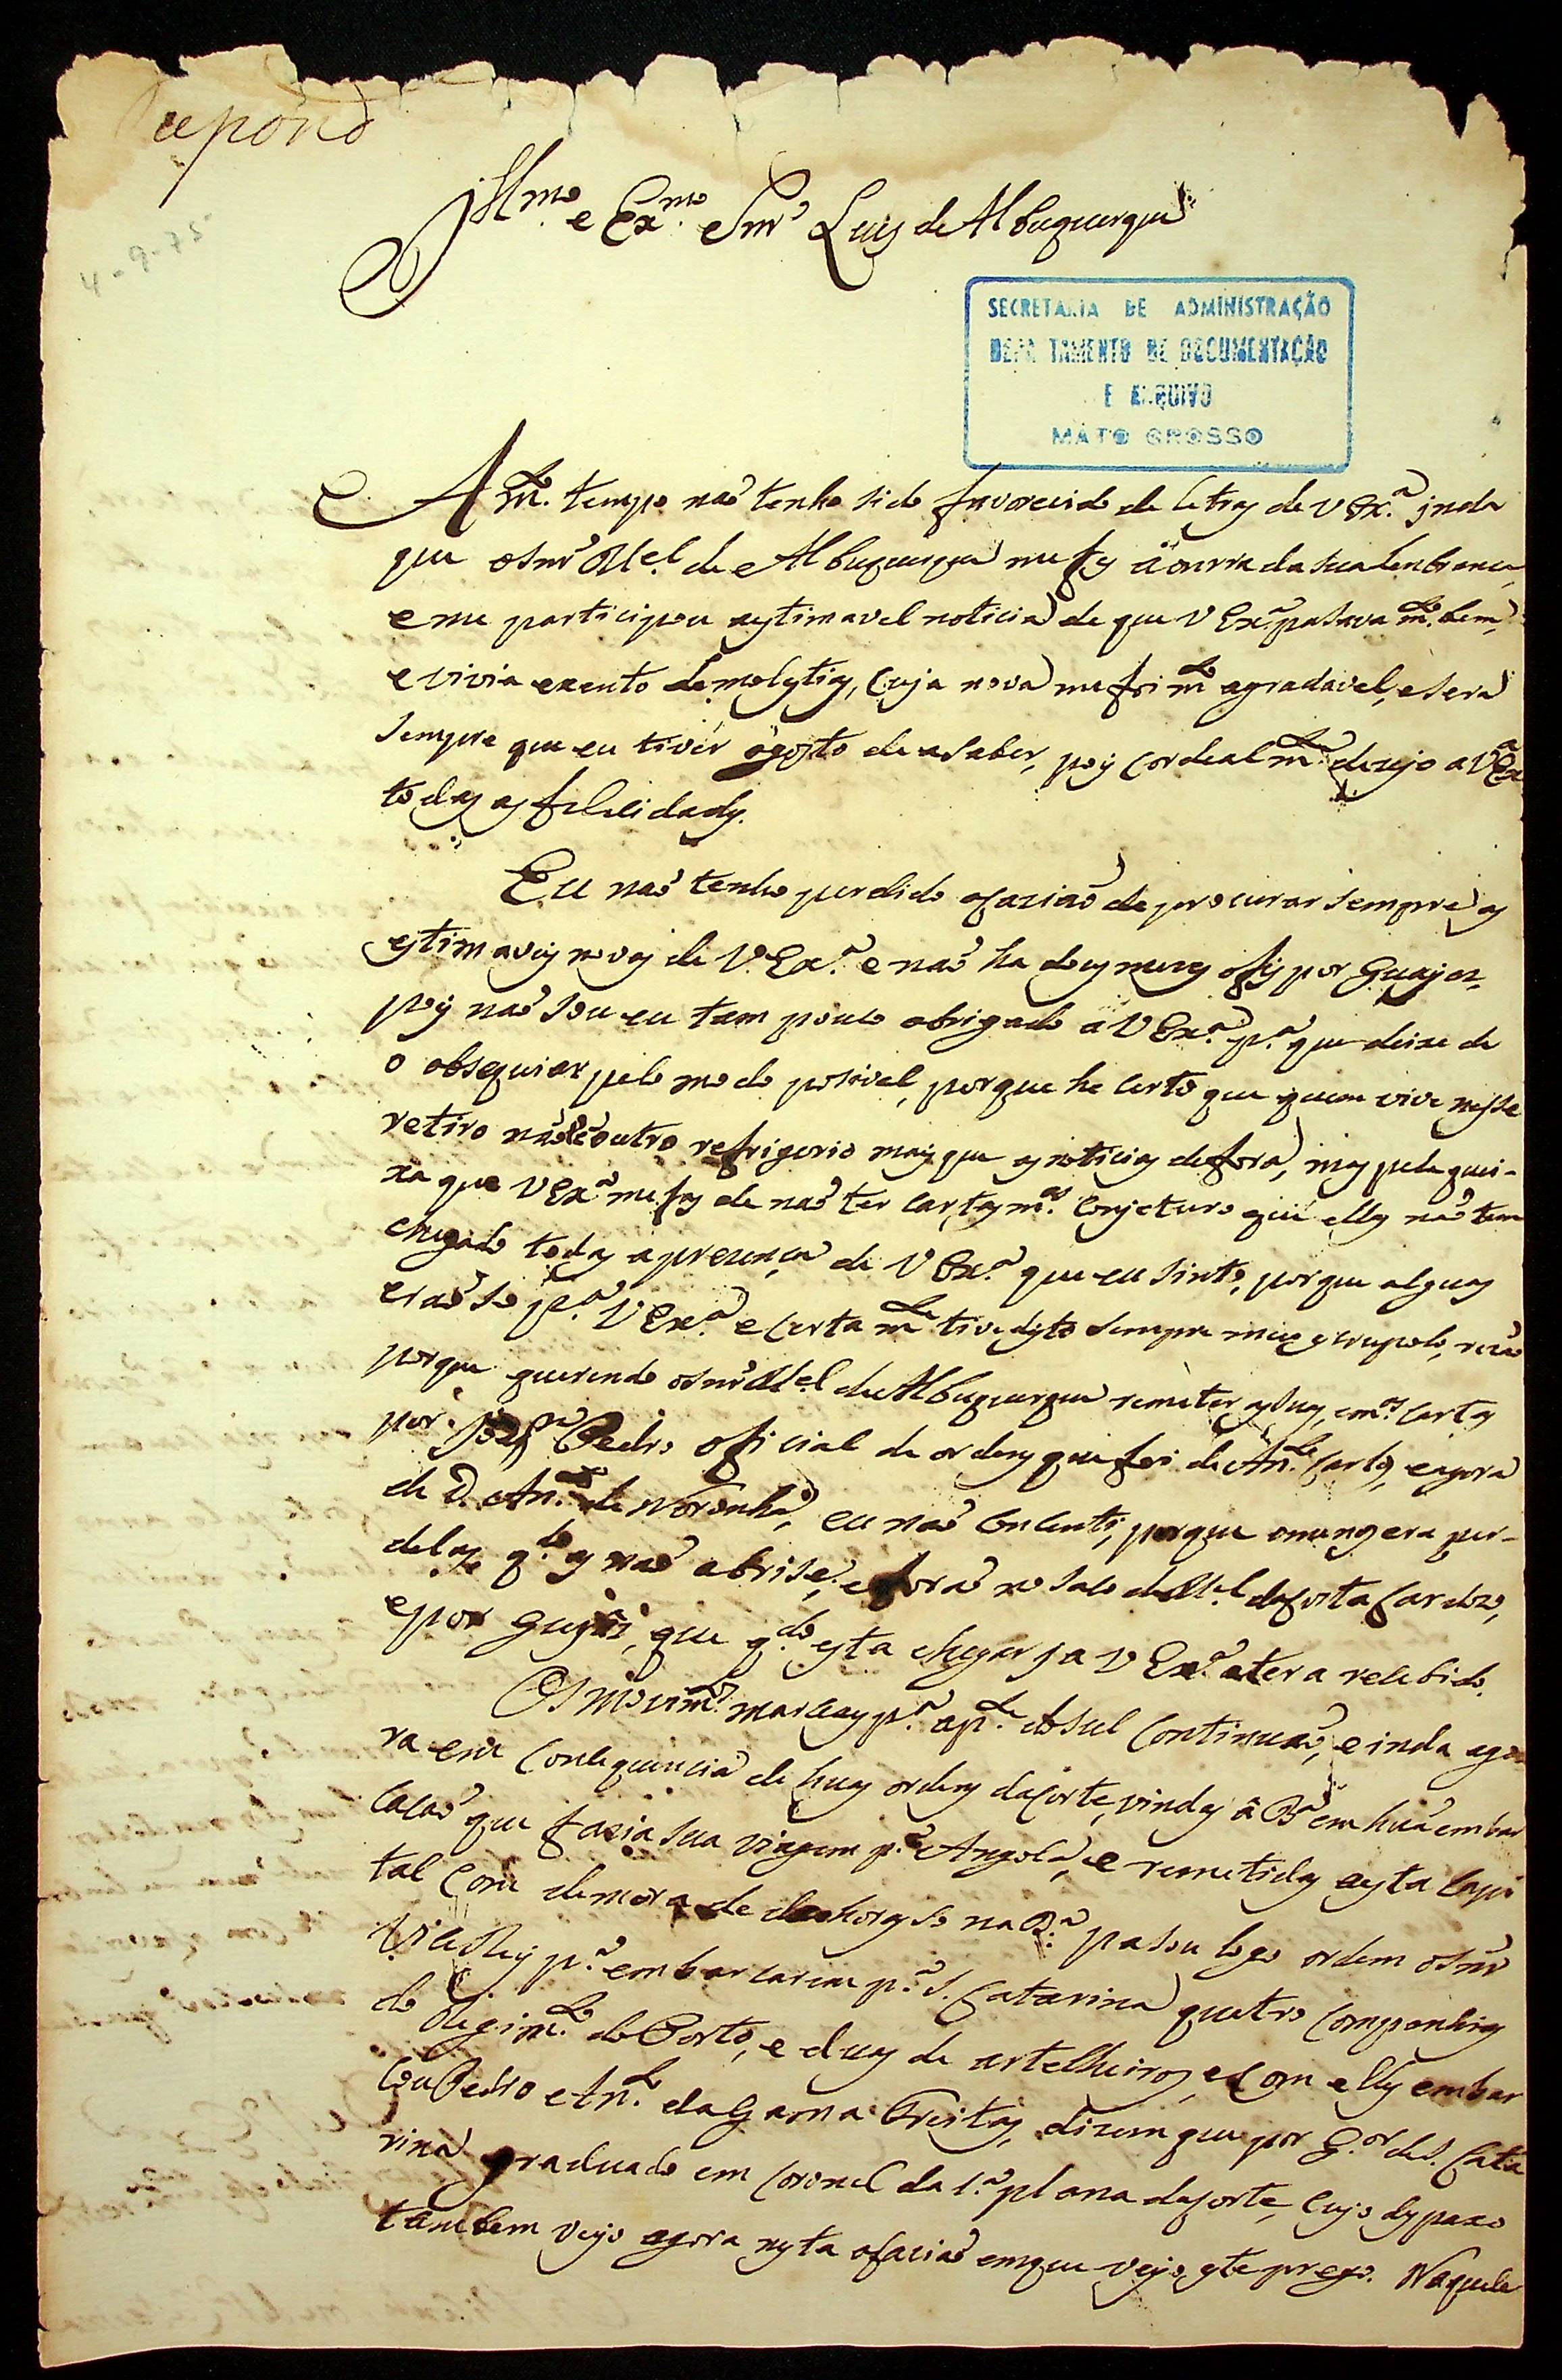 Repond
4-9-75
Illmo. e Exmo. Snr. Luis de Albuquerque
SECRETARIA DE ADMINISTRAÇÃO
DEPARTAMENTO DE DOCUMENTAÇÃO
E ARQUIVO
MATO GROSSO
A mto. tempo não tenho sido favorecido de letras de V Exa. inda
que o Snr. Mel. de Albuquerque me fes a onrra da sua lenbrança,
e me participou a estimavel noticia de que V Exa. pasava mto. bem,
e vivia exento de molestias, cuja nova me foi mto. agradavel, e sera
sempre que eu tiver o gosto de a saber, pois cordealmte. dezejo a V Exa
todas as felicidades.
Eu não tenho perdido ocazião de procurar sempre as
estimaveis novas de V. Exa. e não ha dous mezes o fis por Guayaz,
pois não sou eu tam pouco obrigado a V Exa. pa. que deixe de
o obsequiar pelo modo posivel, porque he certo que quem vive nesse
retiro não tem outro refrigerio mais que as noticias de fora, mas pela quei-
xa que V Exa. me fas de não ter cartas ms. conjeturo que ellas não tem
chegado todas a prezença de V Exa. que eu sinto, porque alguas
erão so pa. V Exa. e certamte. tive disto sempre meu escrupolo,
porque querendo o Snr. Mel. de Albuquerque remeter as suas, e ms. cartas
por Pedro oficial de ordens que foi de Anto. Carlos, e agora
de D. Anto. de Noronha, eu não concenti, porque o menos era per-
delas qdo. as não abrise, e forão no saco de Mel. da Costa Cardozo,
e por Guyás, que qdo. esta chegar ja V Exa. a tera recebido.
Os movimtos. marciais pa. a pte. do sul continuão, e inda ago-
ra em consequencia de huas ordens da Corte, vindas â Ba. em huã embar
cação que fazia sua viagem pa. Angola, e remetidas a esta Capi
tal com demora de horas so na Ba. pasou logo ordem o Snr.
Vice Rey pa. embarcarem pa. S. Catarina quatro companhias
do Regimto. do Porto, e duas de artelheiros, e com elles embar
cou Pedro Anto. da Gama Freitas, dizem que por Gor. de S. Cata
rina graduado em coronel da 1a. plana da Corte, cujo despaxo
tambem vejo agora nesta ocazião em que vejo este prezo. Naquele